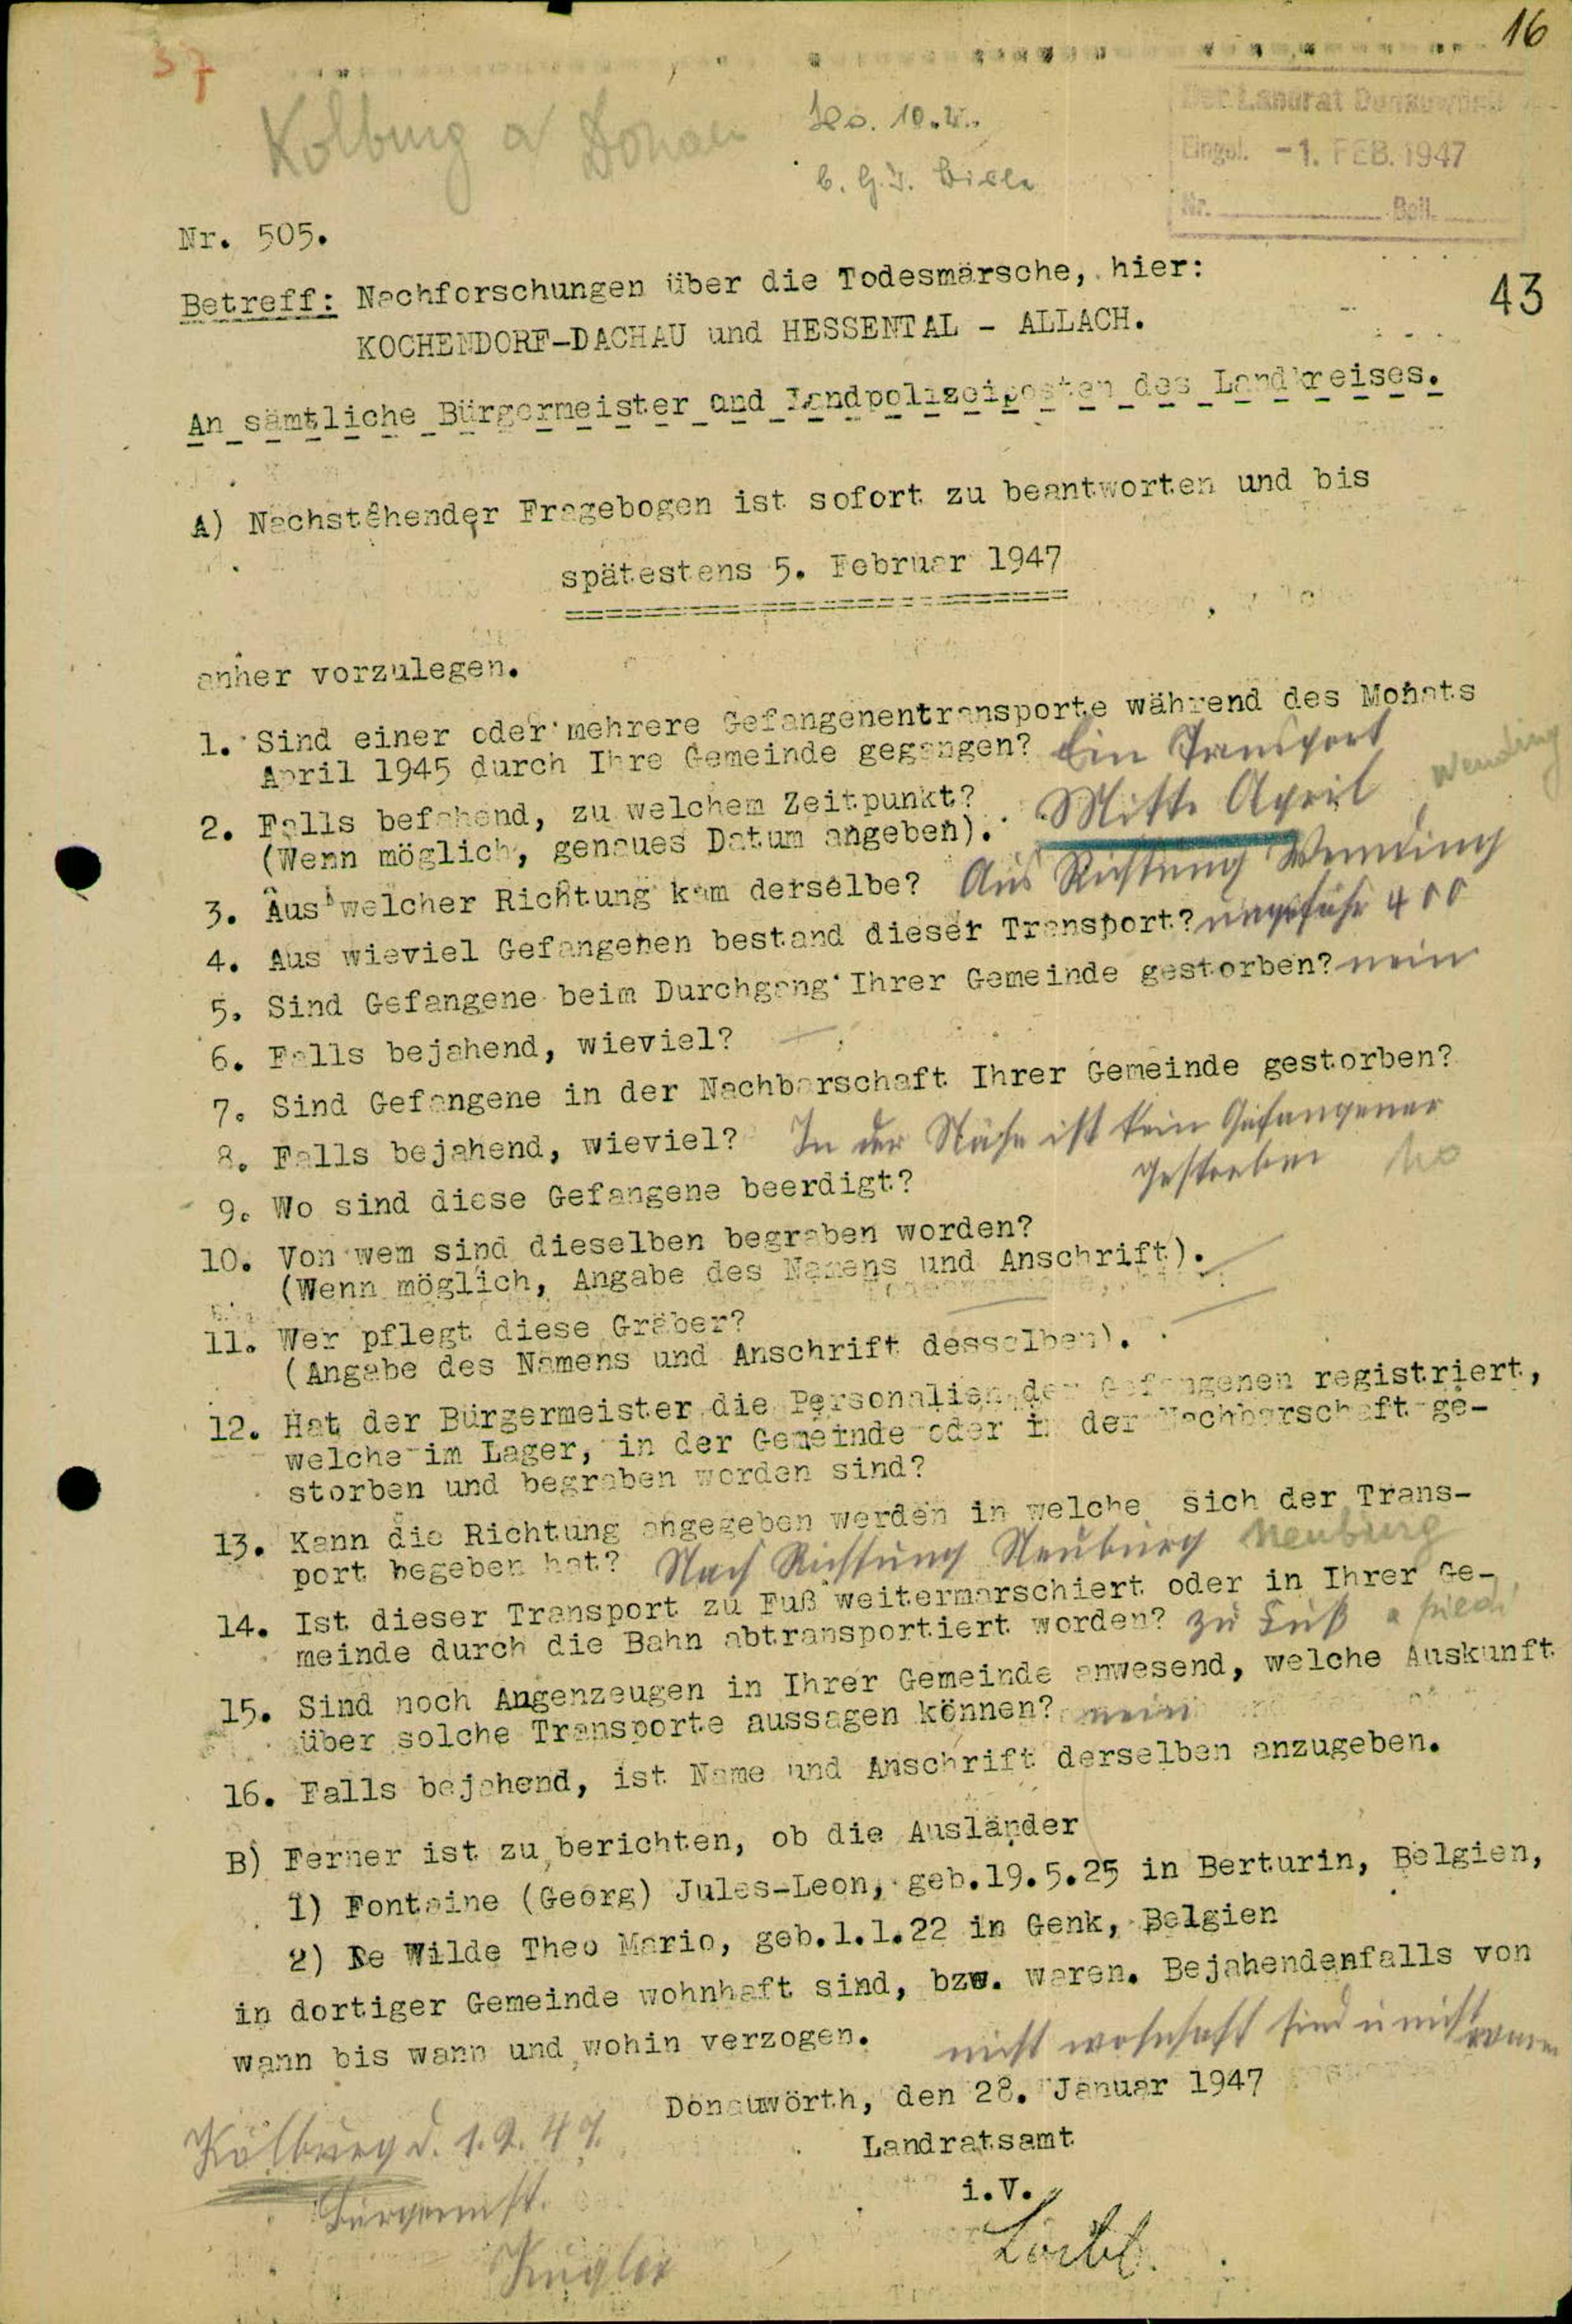 16
37
Kölburg a Donau
10.2.
Der Landrat Donauwörth
Eingel. -1. FEB. 1947
Nr. Beil.
Nr. 505.
Betreff: Nachforschungen über die Todesmärsche, hier:
43
KOCHENDORF-DACHAU und HESSENTAL - ALLACH.
An sämtliche Bürgermeister und Landpolizeiposten des Landkreises.
A) Nachstehender Fragebogen ist sofort zu beantworten und bis
spätestens 5. Februar 1947
anher vorzulegen.
1. Sind einer oder mehrere Gefangenentransporte während des Monats
April 1945 durch Ihre Gemeinde gegangen? Ein Transport
2. Falls befahend, zu welchem Zeitpunkt? Mitte April Wemding
(Wenn möglich, genaues Datum angeben).
3. Aus welcher Richtung kam derselbe? Aus Richtung Wemding
4. Aus wieviel Gefangenen bestand dieser Transport? ungefähr 400
5. Sind Gefangene beim Durchgang Ihrer Gemeinde gestorben? nein
6. Falls bejahend, wieviel? —
7. Sind Gefangene in der Nachbarschaft Ihrer Gemeinde gestorben?
8. Falls bejahend, wieviel? In der Nähe ist kein Gefangener
gestorben no
9. Wo sind diese Gefangene beerdigt?
10. Von wem sind dieselben begraben worden?
(Wenn möglich, Angabe des Namens und Anschrift).
11. Wer pflegt diese Gräber?
(Angabe des Namens und Anschrift desselben).
12. Hat der Bürgermeister die Personalien der Gefangenen registriert,
welche im Lager, in der Gemeinde oder in der Nachbarschaft ge-
storben und begraben worden sind?
13. Kann die Richtung angegeben werden in welche sich der Trans-
port begeben hat? Nach Richtung Neuburg Neuburg
14. Ist dieser Transport zu Fuß weitermarschiert oder in Ihrer Ge-
meinde durch die Bahn abtransportiert worden? zu Fuß a pied
15. Sind noch Angenzeugen in Ihrer Gemeinde anwesend, welche Auskunft
über solche Transporte aussagen können? nein
16. Falls bejahend, ist Name und Anschrift derselben anzugeben.
B) Ferner ist zu berichten, ob die Ausländer
1) Fontaine (Georg) Jules-Leon, geb.19.5.25 in Berturin, Belgien,
2) De Wilde Theo Mario, geb.1.1.22 in Genk, Belgien
in dortiger Gemeinde wohnhaft sind, bzw. waren. Bejahendenfalls von
wann bis wann und wohin verzogen. nicht wohnhaft sind u nicht waren
Donauwörth, den 28. Januar 1947
Kölburg d. 1.2.47.
Landratsamt
i.V.
Bürgermst.
Kugler